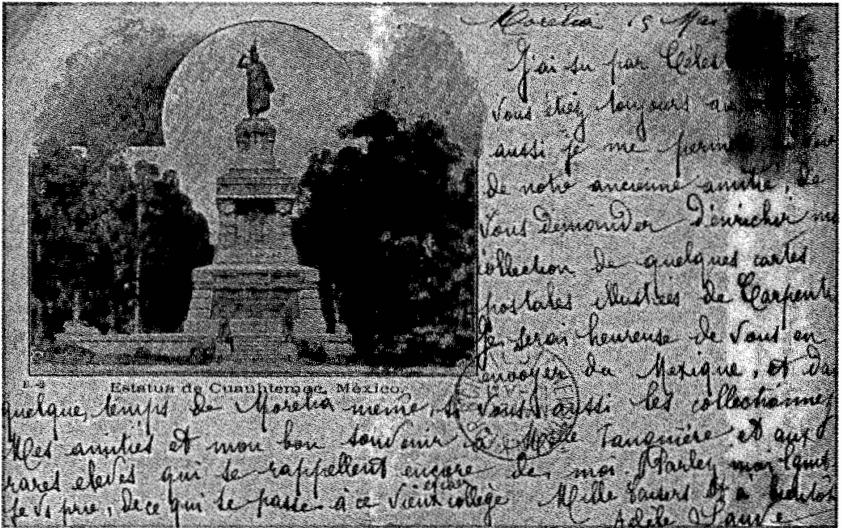 Morélia 15 Mai
J'ai su par Célés
vous étiez toujours
aussi je me permets
de notre ancienne amitié, de
vous demander d'enrichir ma
collection de quelques cartes
postales illustrées de Carpent
Je serai heureuse de vous en
envoyer du Mexique, et da
E-3
Estatua de Cuauhtemoc, México.
quelque temps de Morelia même, si vous aussi les collectionnez
Mes amitiés et mon bon souvenir à Melle et aux
rares elèves qui se rappellent encore de moi. Parlez moi
je vs prie, de ce qui se passe à ce vieux et cher collège Mille baisers et à bientôt
Adèle